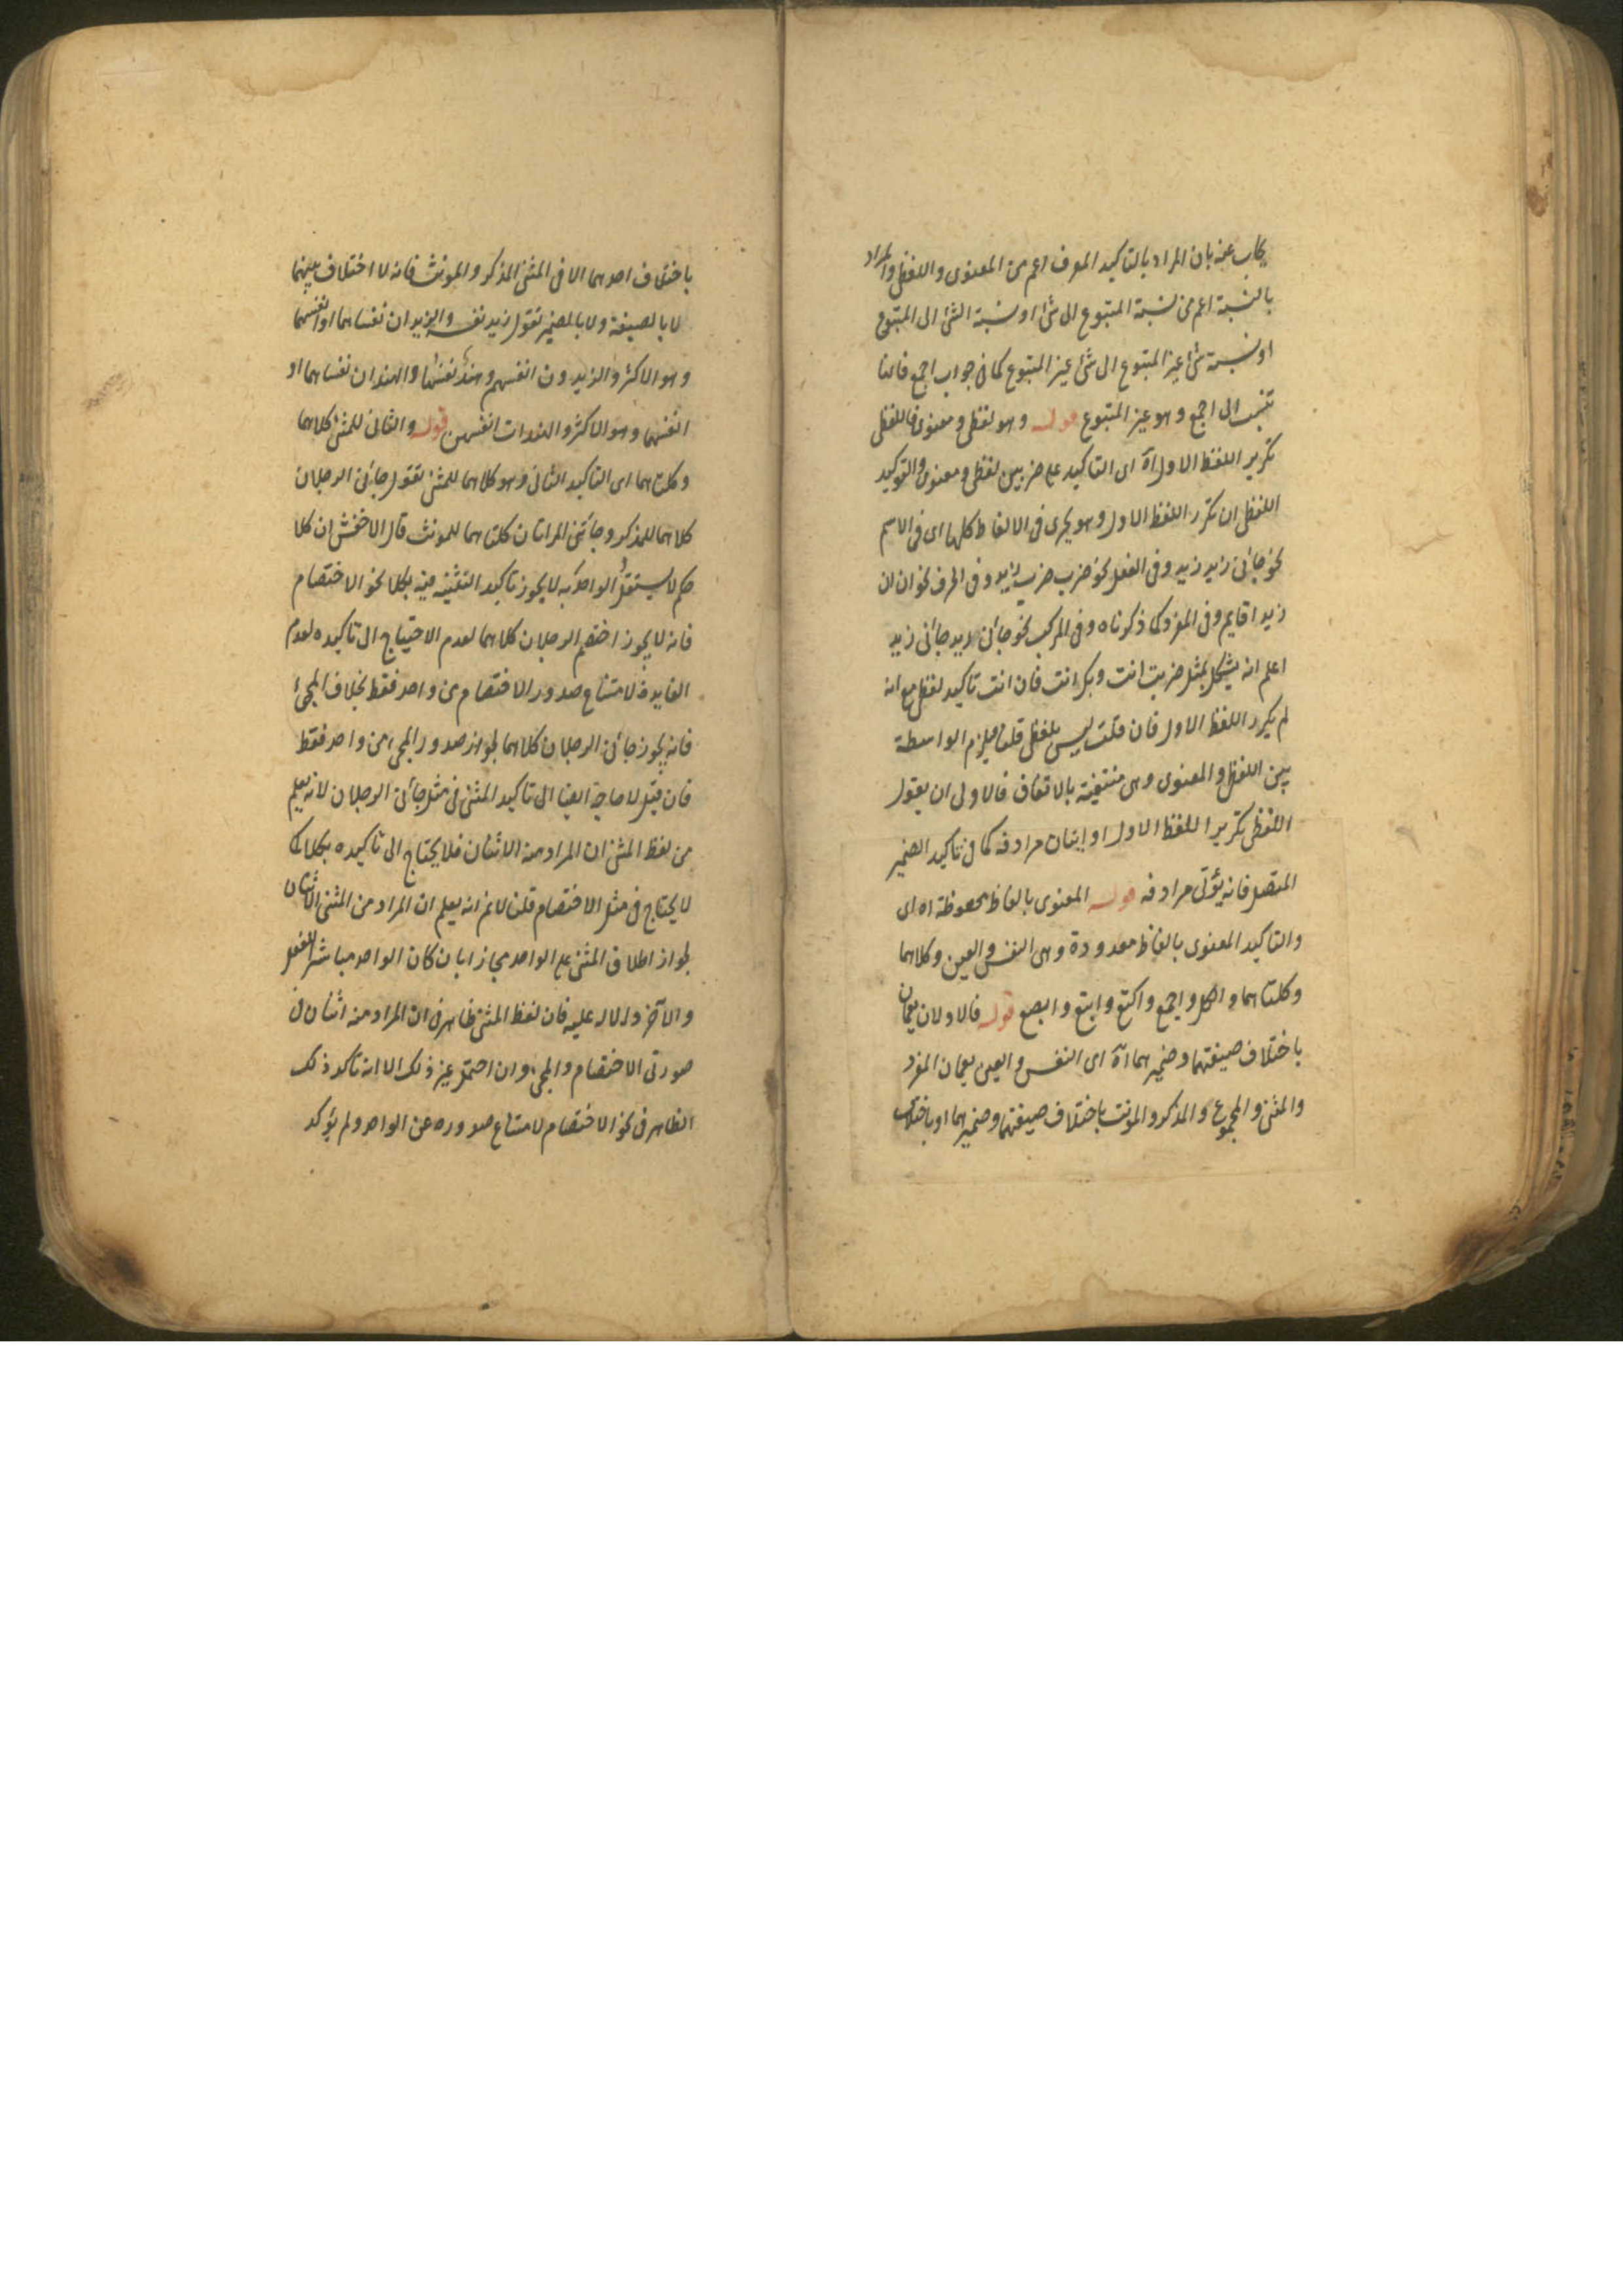 يجاب عنه بان المراد بالتاكيد المعرف اعم من المعنوى واللفظى والمراد
بالنسبة اعم من نسبة المتبوع الى شئ او نسبة الشئ الى المتبوع
او نسبة شئ غير المتبوع الى شئ غير المتبوع كما فى جواب اجمع فانها
تنسب الى اجمع وهو غير المتبوع قوله وهو لفظى ومعنوى فاللفظى
تكرير اللفظ الاول آه اى التاكيد على ضربين لفظى ومعنوى والتوكيد
اللفظى ان تكرر اللفظ الاول وهو يجرى فى الالفاظ كلها اى فى الاسم
نحو جائنى زيد زيد وفى الفعل نحو ضرب ضرب زيد وفى الحرف نحو ان ان
زيدا قايم وفى المفرد كما ذكرناه وفى المركب نحو جائنى زيد جائنى زيد
اعلم انه يشكل بمثل ضربت انت وبك انت فان انت تاكيد لفظى مع انه
لم يكرر اللفظ الاول فان قلت ليس بلفظى قلنا فيلزم الواسطة
بين اللفظى والمعنوى وهى منتفية بالاتفاق فالاولى ان يقول
اللفظى تكرير اللفظ الاول او اتيان مرادفه كما فى تاكيد الضمير
المتصل فانه يؤتى مرادفه قوله المعنوى بالفاظ محفوظة اه اى
والتاكيد المعنوى بالفاظ معدودة وهى النفس والعين وكلاهما
وكلتاهما والكل واجمع واكتع وابتع وابصع قوله فالاولان يعمان
باختلاف صيغتهما وضميرهما آه اى النفس والعين يعمان المفرد
والمثنى والمجموع والمذكر والمونث باختلاف صيغتهما وضميرهما او باختلاف
باختلاف احدهما الا فى المثنى المذكر والمونث فانه لا اختلاف بينهما
لا بالصيغة ولا بالضمير تقول زيد نفسه والزيدان نفساهما او انفسهما
وهو الاكثر والزيدون انفسهم وهند نفسها والهندان نفساهما او
انفسهما وهو الاكثر والهندات انفسهن قوله والثانى للمثنى كلاهما
وكلتاهما اى التاكيد الثانى وهو كلاهما للمثنى تقول جائنى الرجلان
كلاهما للمذكر وجائتنى المراتان كلتاهما للمونث قال الاخفش ان كلا
حكم لا يستقل الواحد به لا يجوز تاكيد التثنية فيه بكلا نحو الاختصام
فانه لا يجوز اختصم الرجلان كلاهما لعدم الاحتياج الى تاكيده لعدم
الفايدة لامتناع صدور الاختصام من واحد فقط بخلاف المجئ
فانه يجوز جائنى الرجلان كلاهما لجواز صدور المجىء من واحد فقط
فان قيل لا حاجة ايضا الى تاكيد المثنى فى مثل جائنى الرجلان لانه يعلم
من لفظ المثنى ان المراد منه الاثنان فلا يحتاج الى تاكيده بكلا كما
لا يحتاج فى مثل الاختصام قلنا لا نم انه يعلم ان المراد من المثنى الاثنان
لجواز اطلاق المثنى على الواحد مجازا بان كان الواحد مباشر الفعل
والآخر دلاله عليه فان لفظ المثنى ظاهر فى ان المراد منه اثنان فى
صورتى الاختصام والمجىء وان احتمل غير ذلك الا انه تاكد ذلك
الظاهر فى نحو الاختصام لامتناع صدوره عن الواحد ولم يؤكد